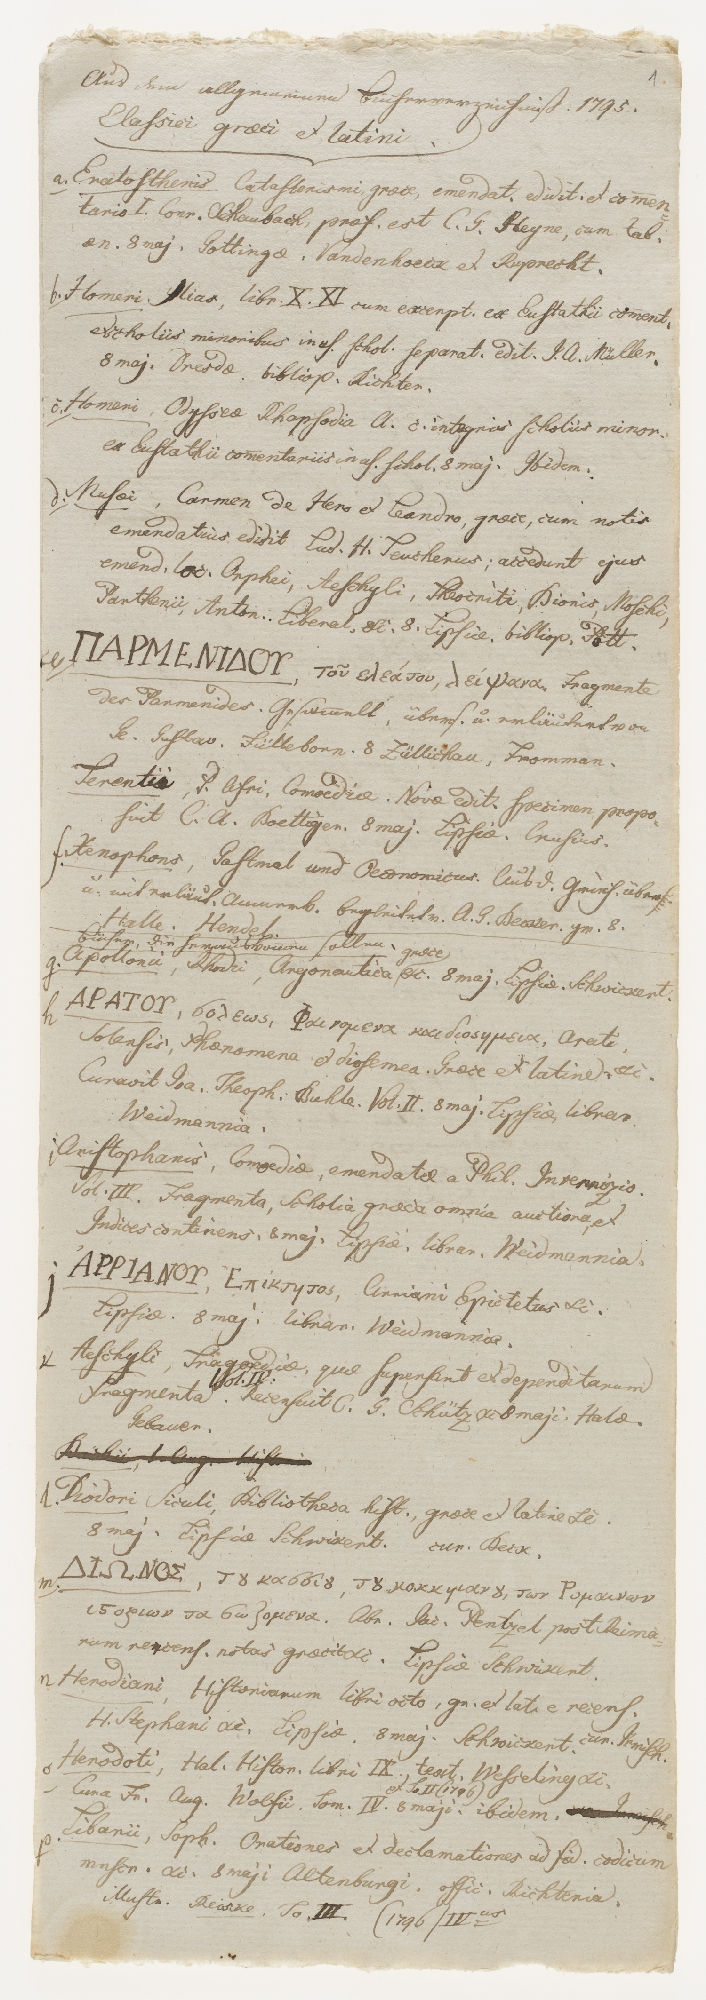 1.
Aus dem allgemeinen Bücherverzeichniß. 1795.
Classici græci et latini.
a. Eratosthenis Catasterismi, græce, emendat. edidit. et comen=
tario I. Conr. Schaubach, præf. est C. G. Heyne, cum tab.
æn. 8 maj. Gottingæ. Vandenhoeck et Ruprecht.
b. Homeri Ilias, libr. X. XI cum excerpt. ex Eustathii coment.
et scholiis minoribus in us. schol. separat. edit. J. A. Müller.
8 maj. Dresdæ. bibliop. Richter.
c. Homeri, Odysseæ Rhapsodia A. c. integris scholiis minor.
ex Eustathii comentariis in us. schol. 8 maj. Ibidem.
d. Musæi, Carmen de Hero et Leandro, græce, cum notis
emendatius edidit Lud. H. Teucherus; accedunt ejus
emend. loc. Orphei, Aeschyli, Theocriti, Bionis, Moschi,
Parthenii, Anton. Liberal. &c. 8. Lipsiæ. bibliop. Pott.
e, ΠΑΡΜΕΝΙΔΟΥ, τοῦ ελεάτου, λείψανα. Fragmente
des Parmenides. Gesammelt, übers. u. erläutert von
Ge. Gustav. Fülleborn. 8 Züllichau, Fromman.
Terentii, P. Afri, Comoediæ. Novæ edit. specimen propo-
suit C. A. Boettiger. 8 maj. Lipsiæ. Crusius.
f. Xenophons, Gastmal und Oeconomicus. Aus d. Griech. übers.
u. mit erläut. Anmerk. begleitet v. A. G. Becker. gr. 8.
Halle. Hendel.
Bücher, die herauskommen sollen.
g. Apollonii, Rhodii, Argonautica græce &c. 8 maj. Lipsiæ. Schwickert.
h ΑΡΑΤΟΥ, σολεως, Φαινομενα και διοσημεια, Arati,
Solensis, Phænomena et diosemea. Græce et latine &c.
Curavit Joa. Theoph. Buhle. Vol. II. 8 maj. Lipsiæ, librar.
Weidmannia.
i Aristophanis, Comoediæ, emendatæ a Phil. Invernizio.
Vol. III. Fragmenta, Scholia græca omnia auctiora, et
Indices continens. 8 maj. Lipsiæ. librar. Weidmannia.
j ἈΡΡΙΑΝΟΥ, Επικτητος, Arriani Epictetus &c.
Lipsiæ. 8 maj. librar. Weidmannia.
k Aeschyli, Tragoediæ, quæ supersunt et deperditarum
fragmenta. Vol. IV. Recensuit C. G. Schütz &c 8 maj. Halæ.
Gebauer.
l. Diodori Siculi, Bibliotheca hist., græce et latine &c.
8 maj. Lipsiæ Schwickert. cur. Beck.
m. ΔΙΩΝΟΣ, τȣ κασσιȣ, τȣ κοκκηιανȣ, των Ρομαικων
ιϛοριων τα σωζομενα. Abr. Jac. Penzel post Reima=
rum recens. notas græcit &c. Lipsiæ Schwickert.
n Herodiani, Historiarum libri octo, gr. et lat. e recens.
H. Stephani &c. Lipsiæ. 8 maj. Schwickert. cur. Irmisch.
o Herodoti, Hal. Histor. libri IX, text. Wesseling &c.
Cura Fr. Aug. Wolfii. Tom. IV. et To II (1796) 8 maj. ibidem.
p. Libanii, Soph. Orationes et declamationes ad fid. codicum
mnscr. &c. 8 maj Altenburgi. offic. Richteria.
Illustr. Reiske. To. III (1796) IVus